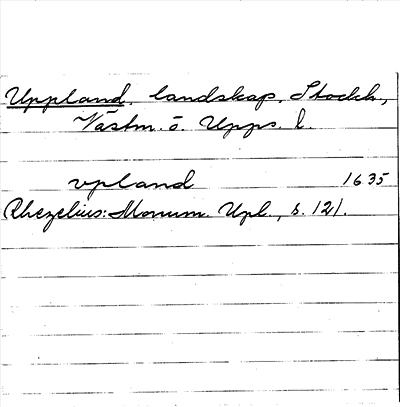 Uppland, landskap, Stockh.,
Västm. o. Upps. l.
vpland 1635
Rhezelius: Monum. Upl., s. 121.